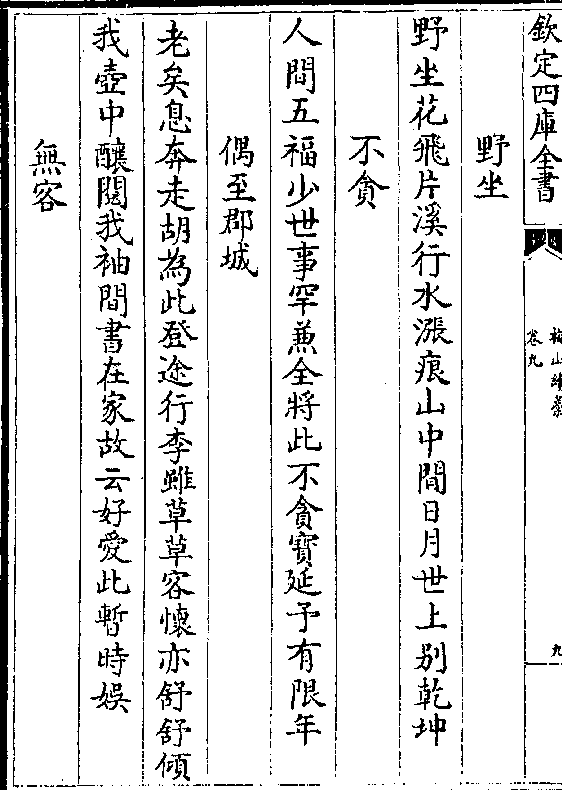 欽定四庫全書
梅山續藁
卷九
九
野坐
野坐花飛片溪行水漲痕山中間日月世上別乾坤
不貪
人間五福少世事罕兼全將此不貪寳延予有限年
偶至郡城
老矣息奔走胡為此登途行李雖草草客懷亦舒舒傾
我壺中釀閱我袖間書在家故云好愛此暫時娯
無客